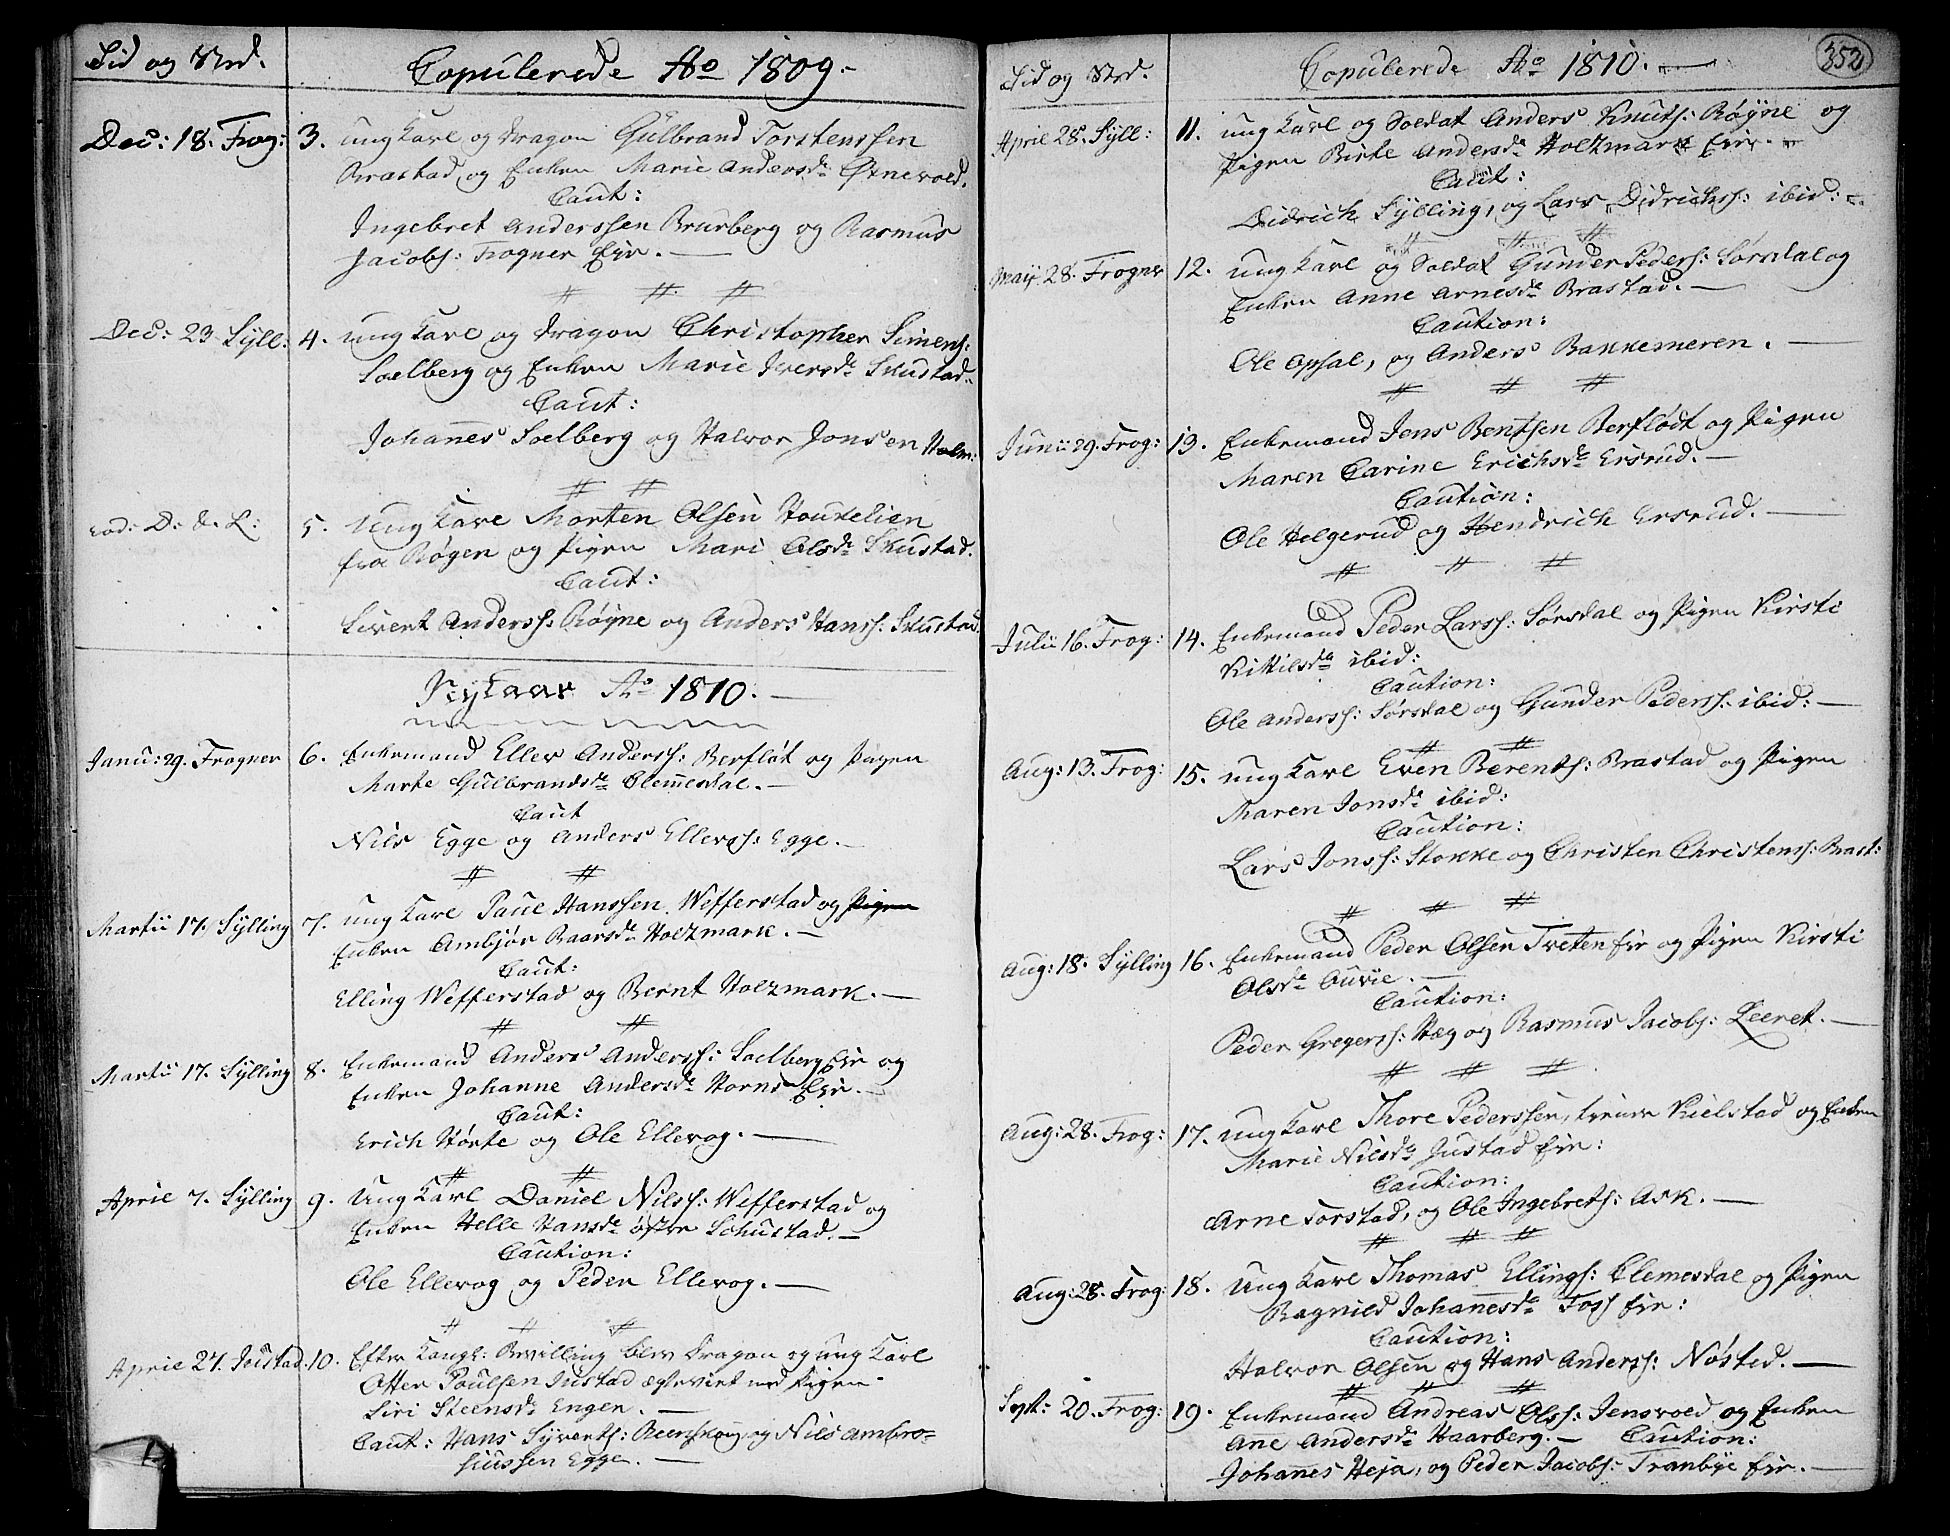 Tid og Sted.
Copulerede Ao 1809.
Dec: 18. Frog: 3. ung Karl og Dragon Gulbrand Torstenssen
Brastad og Enken Marie Andersd: Øvnevold.
Caut:
Ingebret Anderssen Brurberg og Rasmus
Jacobs: Frogner Eir.
Dec: 23 Syll: 4. ung Karl og Dragon Christopher Simens:
Soelberg og Enken Marie Iversd: Skustad
Caut:
Johannes Soelberg og Halvor Jonsen Holm:
eod: D: & L: 5. Ung Karl Morten Olsen
fra Røgen og Pigen Mari Olsd: Skustad.
Caut:
Sivert Anderss: Røyne og Anders Hanss: Skustad.
Nytaar Ao 1810.
Janu: 29. Frogner 6. Enkemand Ellev Anderss: Berfløt og Pigen
Marte Gulbrandsd: Clemmesdal.
Caut
Nils Egge og Anders Ellevss: Egge.
Martii 17. Sylling 7. ung Karl Paul Hanssen Wefferstad og Pigen
Enken Ambjør Baarsd: Holtzmark.
Caut:
Elling Wefferstad og Bernt Holzmark.
Martii 17. Sylling 8. Enkemand Anders Anderss: Soelberg Eir og
Enken Johanne Andersd: Horns Eir.
Caut:
Erich Hørte og Ole Ellevog.
April 7. Sylling 9. Ung Karl Daniel Nilss: Wefferstad og
Enken Helle Hansd: østre Schustad.
Caution:
Ole Ellevog og Peder Ellevog.
April 27. Joustad. 10. Efter Kongl: Bevilling blev Dragon og ung Karl
Otter Poulsen Justad ægteviet med Pigen
Siri Steensd: Engen.
Caut: Hans Syverts: Reenskoug og Nils Ambro=
siussen Egge.
Tid og Sted.
Copulerede Ao 1810.
352
April 28. Syll: 11. ung Karl og Soldat Anders Knuts: Røyne og
Pigen Birte Andersd: Holtzmark Eir.
Caut:
Didrich Sylling, og Lars Didrichss: ibid:
Maij 28. Frogner 12. ung Karl og Soldat Gunder Peders: Sørsdal og
Enken Anne Arnesd: Brastad.
Caution:
Ole Opsal, og Anders Bakkemeren.
Junii 29. Frog: 13. Enkemand Jens Bentsen Berflødt og Pigen
Maren Carine Erichsd: Ersrud.
Caution:
Ole Helgerud og Hendrich Ersrud.
Julii 16. Frog: 14. Enkemand Peder Larss: Sørsdal og Pigen Kirsti
Kittilsd: ibid:
Caution:
Ole Anderss: Sørsdal og Gunder Pederss: ibid:
Aug: 13. Frog: 15. ung Karl Even Berents: Brastad og Pigen
Maren Jonsd: ibid:
Caution:
Lars Jonss: Stokke og Christen Christenss: Brast:
Aug: 18. Sylling 16. Enkemand Peder Olsen Tveten Eir og Pigen Kirsti
Olsd: Ouvie.
Caution:
Peder Gregerss: Hæg og Rasmus Jacobs: Leeret.
Aug: 28. Frog: 17. ung Karl Thore Pederssen, Kielstad og Enken
Marie Nilsd: Justad Eir:
Caution:
Arne Torstad, og Ole Ingebrets: Ask.
Aug: 28. Frog: 18. Ung Karl Thomas Ellings: Clemesdal og Pigen
Ragnild Johanesd: Foss Eir:
Caution:
Halvor Olsen og Hans Anderss: Nøsted.
Sept: 20. Frog: 19. Enkemand Andreas Olss: Jensvold og Enken
Ane Andersd: Haarberg. Caution:
Johannes Heja, og Peder Jacobs: Tranbye Eir.